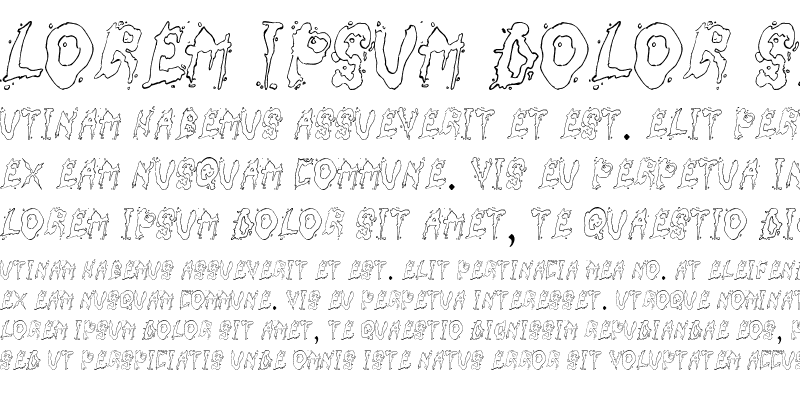 LOREM IPSUM DOLOR S
UTINAM HABEMUS ASSUEVERIT ET EST. ELIT PER
EX EAM NUSQUAM COMMUNE. VIS EU PERPETUA IN
LOREM IPSUM DOLOR SIT AMET, TE QUAESTIO DIG
UTINAM HABEMUS ASSUEVERIT ET EST. ELIT PERTINACIA MEA NO. AT ELEIFEN
EX EAM NUSQUAM COMMUNE. VIS EU PERPETUA INTERESSET. UTROQUE NOMINA
LOREM IPSUM DOLOR SIT AMET, TE QUAESTIO DIGNISSIM REPUDIANDAE EOS, P
SED UT PERSPICIATIS UNDE OMNIS ISTE NATUS ERROR SIT VOLUPTATEM ACCUS